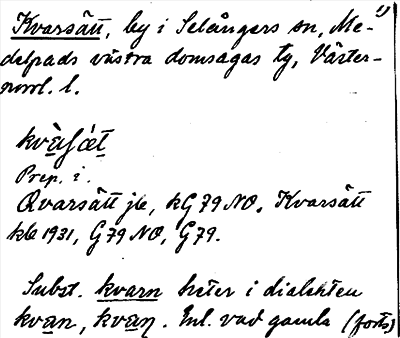 Kvarsätt, by i Selångers sn, Me- 1)
delpads västra domsagas tg, Väster-
norrl. l.
kvàʃǽt
Prep. i.
Qvarsätt jb, kG 79 NO. Kvarsätt
kb 1931, G 79 NO, G 79.
Subst. kvarn heter i dialekten
kvan, kvaɳ. Enl. vad gamla (forts)